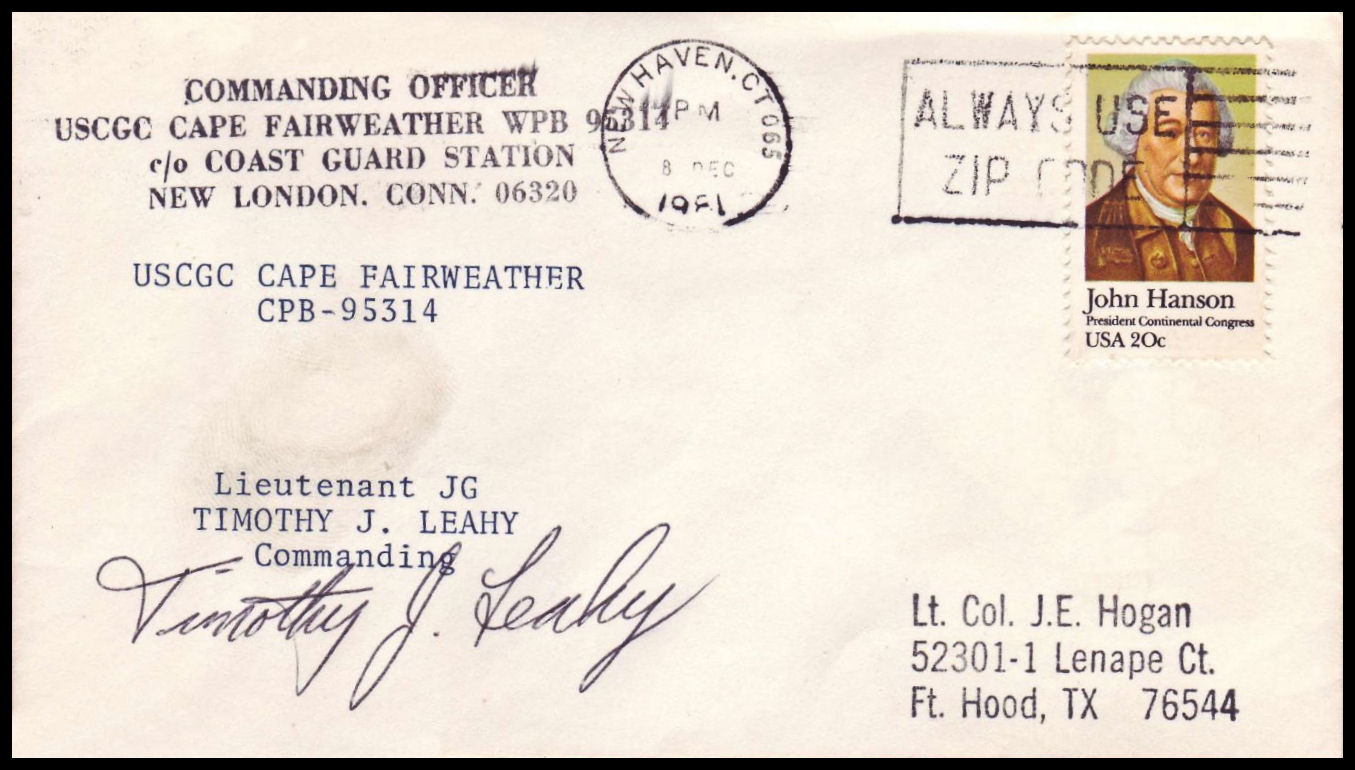 COMMANDING OFFICER
USCGC CAPE FAIRWEATHER WPB 95314
c/o COAST GUARD STATION
NEW LONDON. CONN. 06320
NEW HAVEN, CT 065
PM
8 DEC
1981
ALWAYS USE
ZIP CODE
John Hanson
President Continental Congress
USA 20c
USCGC CAPE FAIRWEATHER
CPB-95314
Lieutenant JG
TIMOTHY J. LEAHY
Commanding
Timothy J. Leahy
Lt. Col. J.E. Hogan
52301-1 Lenape Ct.
Ft. Hood, TX 76544